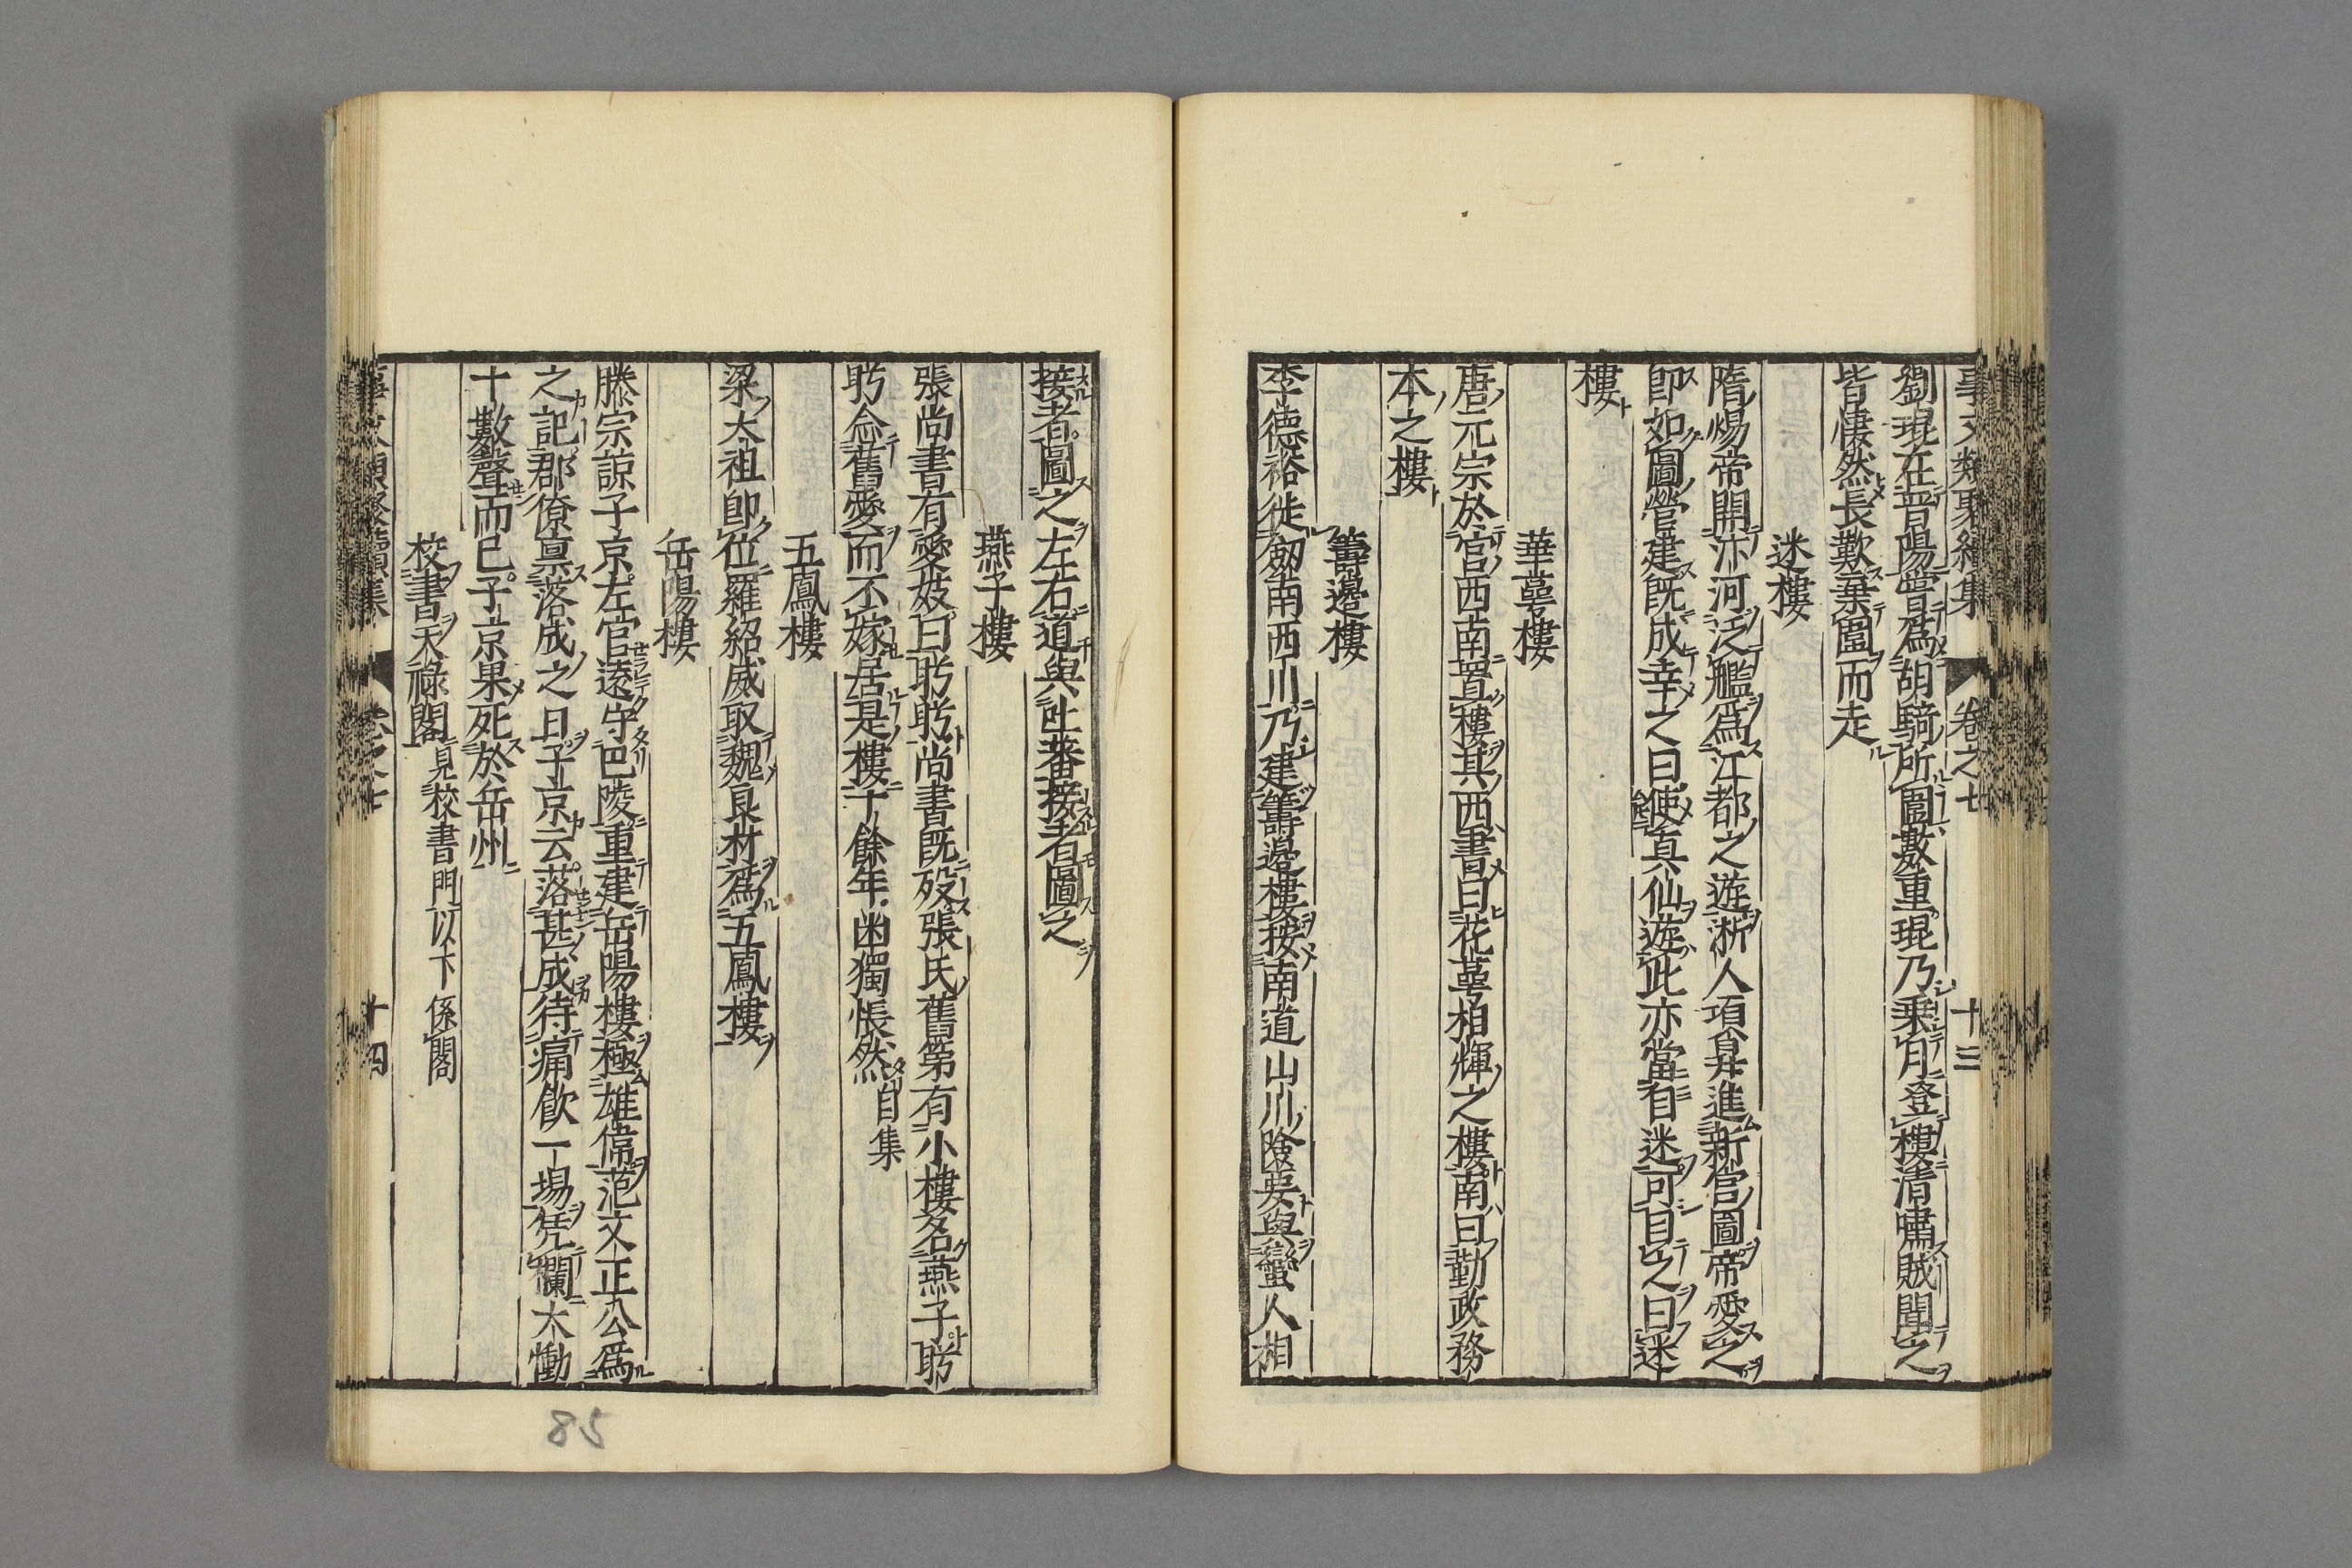 事文類聚續集 卷之七 十三
劉琨在晉陽嘗爲胡騎所圍數重琨乃乗月登樓清嘯賊聞之
皆悽然長歎棄圍而走
迷樓
隋煬帝開汴河泛艦爲江都之遊浙人項昇進新宮圖帝愛之
即如圖營建旣成幸之曰使真仙遊此亦當自迷可目之曰迷
樓
華萼樓
唐元宗於宮西南置樓其西書曰花萼相輝之樓南曰勤政務
本之樓
籌邊樓
李德裕徙劒南西川乃建籌邊樓按南道山川險要與蠻人相
接者圖之左右道與吐蕃接者圖之
燕子樓
張尚書有愛妓曰盻盻尚書旣殁張氏舊第有小樓名燕子盻
盻念舊愛而不嫁居是樓十餘年幽獨悵然白集
五鳳樓
梁太祖卽位羅紹威取魏良材爲五鳳樓
岳陽樓
滕宗諒子京左宦遠守巴陵重建岳陽樓極雄偉范文正公爲
之記郡僚禀落成之日子京云落甚成待痛飮一塲凭欄大慟
十數聲而已子京果死於岳州
校書天祿閣見校書門以下係閣
事文類聚續集 卷之七 十四
85